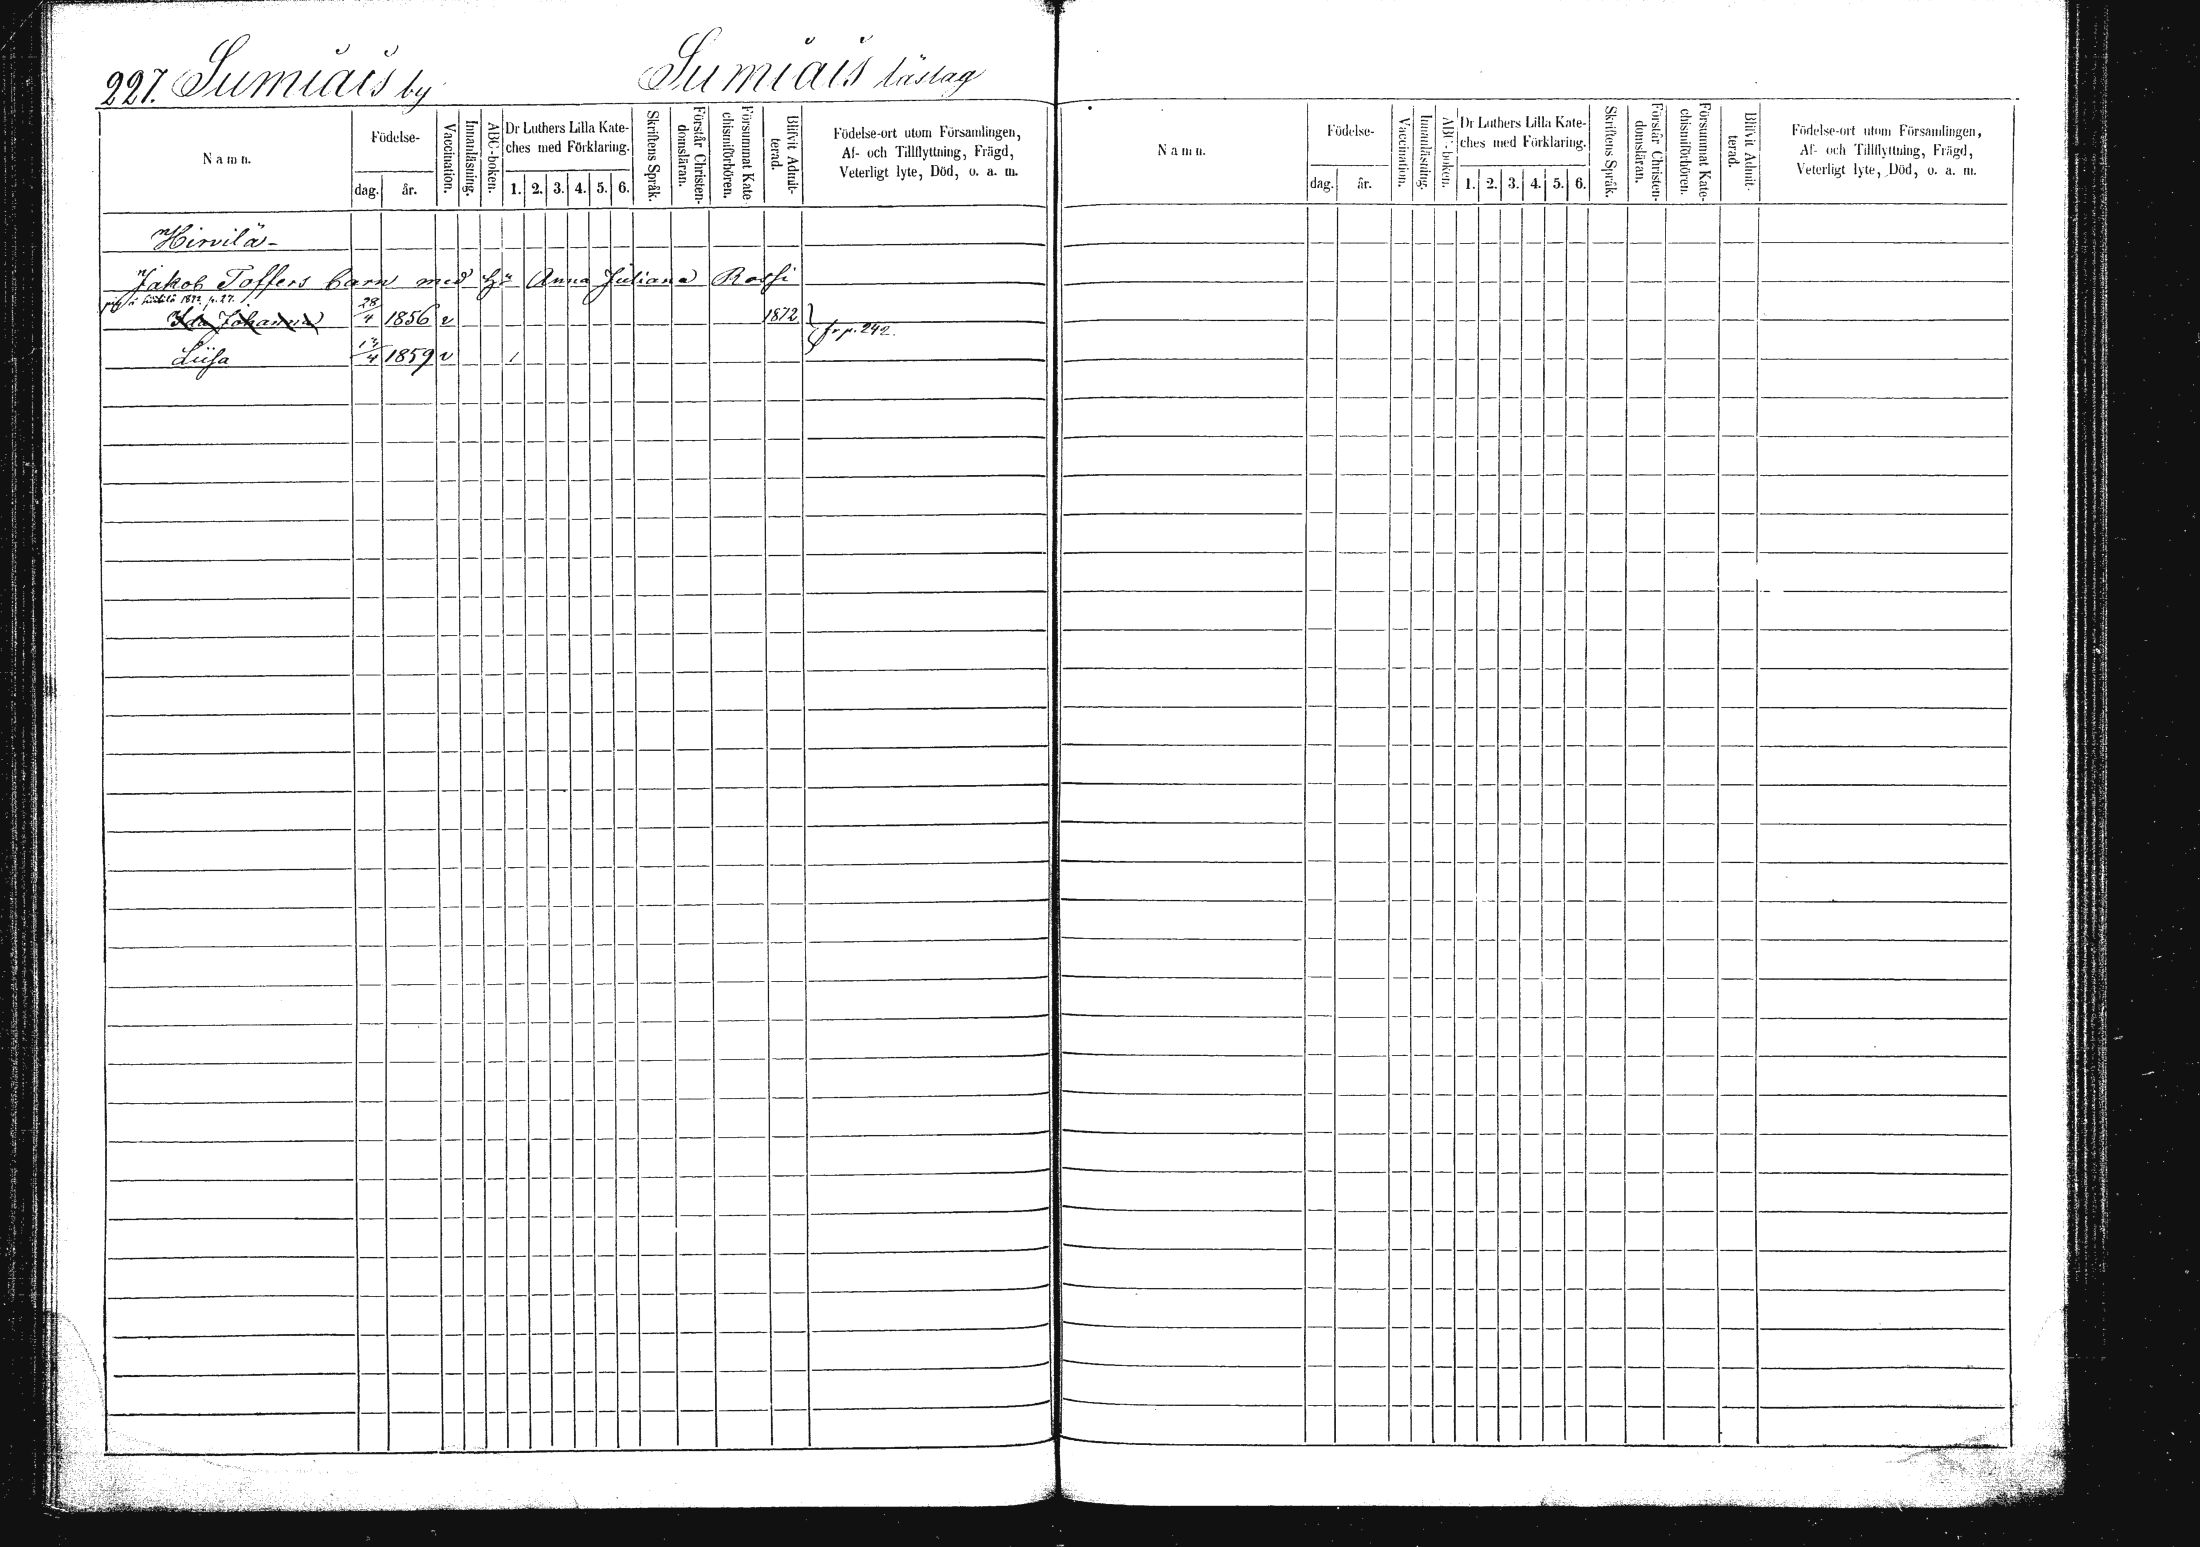 227. Sumiais by Sumiais läslag
Namn.
Födelse-
dag.
år.
Vaccination.
Innanläsning.
ABC-boken.
Dr Luthers Lilla Kate-
ches med Förklaring.
1. 2. 3. 4. 5. 6.
Skriftens Språk.
Förstår Christen-
domsläran.
Försummat Kate-
chismiförhören.
Blifvit Admit-
terad.
Födelse-ort utom Församlingen,
Af- och Tillflyttning, Frägd,
Veterligt lyte, Död, o. a. m.
Hirvilä
Jakob Toffers barn med Anna Juliana Rossi
1872 p. 27.
Ida Johanna 28/4 1856 v 1872
fr p. 242.
Liisa 13/4 1859 v 1
Namn.
Födelse-
dag.
år.
Vaccination.
Innanläsning.
ABC-boken.
Dr Luthers Lilla Kate-
ches med Förklaring.
1. 2. 3. 4. 5. 6.
Skriftens Språk.
Förstår Christen-
domsläran.
Försummat Kate-
chismiförhören.
Blifvit Admit-
terad.
Födelse-ort utom Församlingen,
Af- och Tillflyttning, Frägd,
Veterligt lyte, Död, o. a. m.